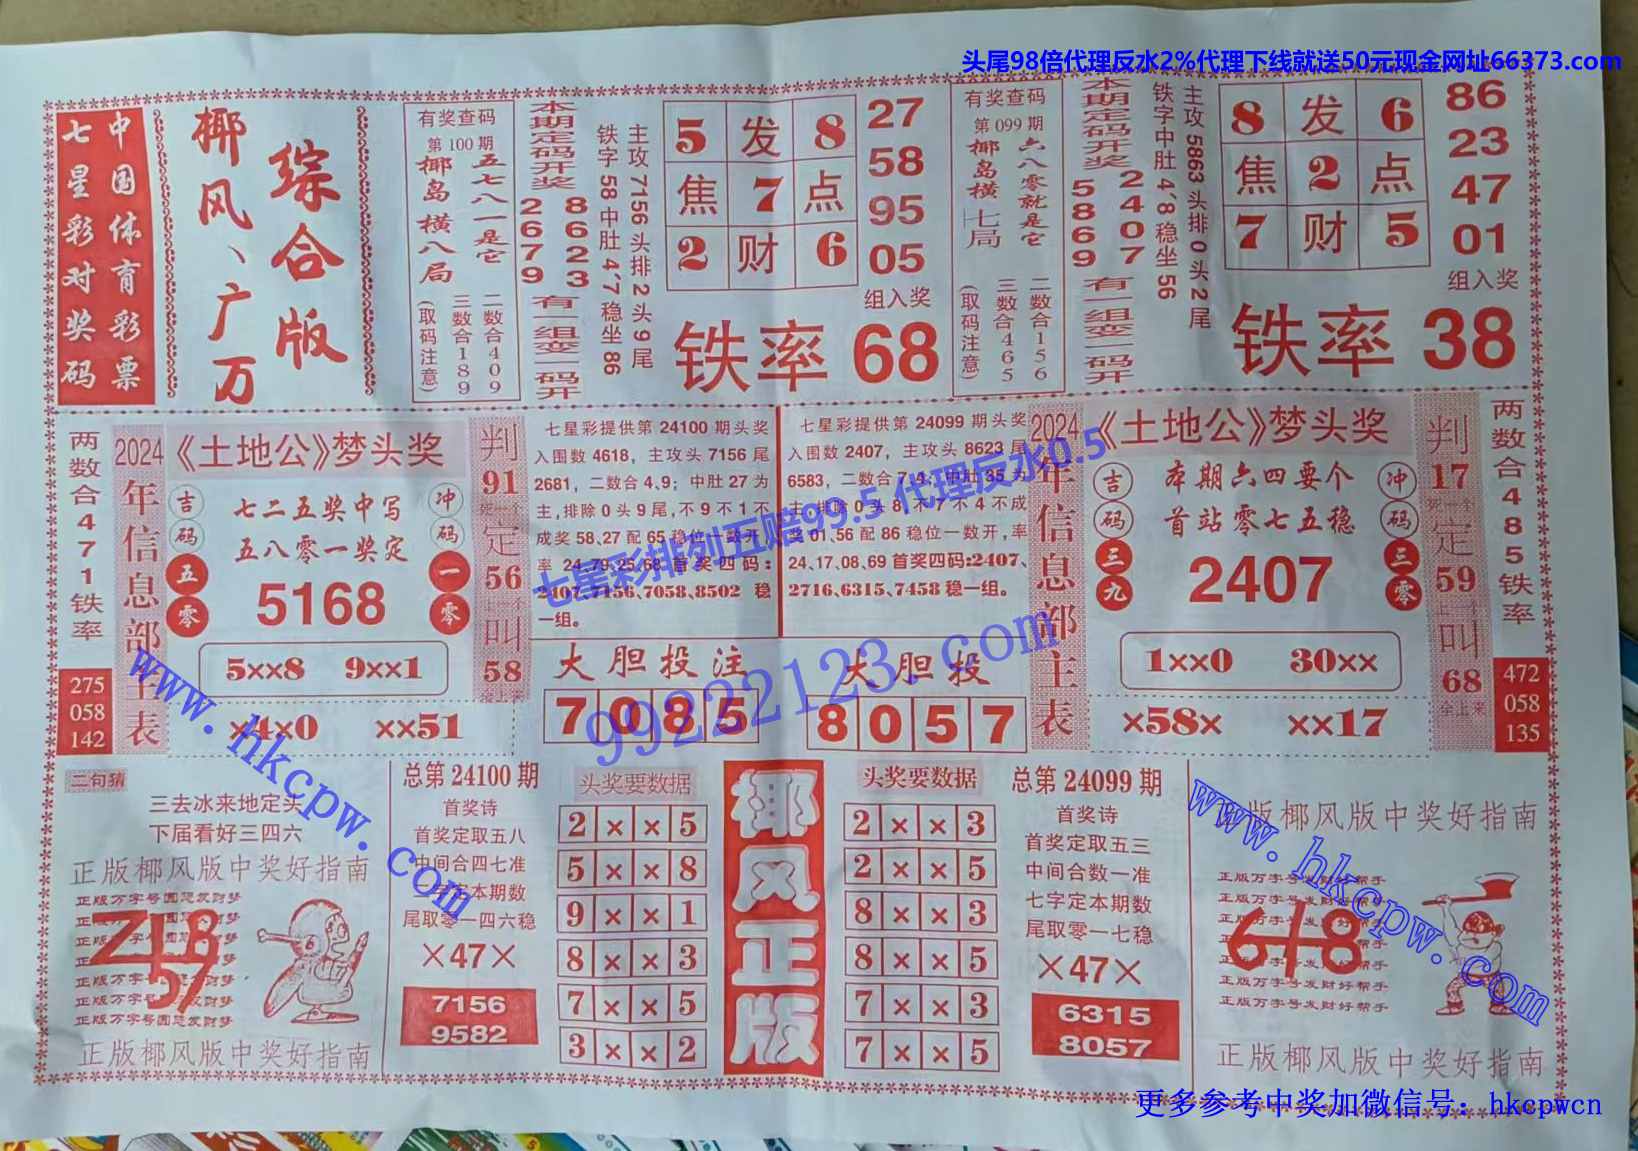 头尾98倍代理反水2%代理下线就送50元现金网址66373.com
中国体育彩票
七星彩对奖码
综合版
椰风、广万
有奖查码
第100期
五七八一是它
椰岛横八局
二数合409
三数合189
(取码注意)
本期定码开奖
8623
2679
有一组变一码开
主攻7156头排2头9尾
铁字58中肚4*7稳坐86
5 发 8
焦 7 点
2 财 6
27
58
95
05
组入奖
铁率68
有奖查码
第099期
六八零就是它
椰岛横七局
二数合156
三数合465
(取码注意)
本期定码开奖
2407
5869
有一组变一码开
主攻5863头排0头2尾
铁字中肚4*8稳坐56
8 发 6
焦 2 点
7 财 5
86
23
47
01
组入奖
铁率38
两数合471铁率
275
058
142
2024
年信息部主表
《土地公》梦头奖
吉码
五零
七二五奖中写
五八零一奖定
5168
冲码
一零
5xx8 9xx1
×4×0 ××51
判
91
定
56
叫
58
七星彩提供第24100期头奖
入围数4618，主攻头7156尾
2681，二数合4.9；中肚27为
主,排除0头9尾,不9不1不
成奖58,27配65稳位一数开,
率24,79,25,68首奖四码:
2407,7156、7058、8502 稳
一组。
七星彩提供第24099期头奖
入围数2407，主攻头8623尾
6583，二数合7,4；中肚35为
主,排除0头8尾,不7不4不成
奖01,56配86稳位一数开,率
24,17,08,69首奖四码:2407、
2716、6315、7458稳一组。
七星彩排列五赔99.5代理反水0.5
99222123.com
大胆投注
7085
大胆投
8057
2024
年信息部主表
《土地公》梦头奖
吉码
三九
本期六四要个
首站零七五稳
2407
冲码
三零
1xx0 30xx
×58× ××17
判
17
定
59
叫
68
两数合485铁率
472
058
135
二句猜
三去冰来地定头
下届看好三四六
正版椰风版中奖好指南
正版椰风版中奖好指南
总第24100期
首奖诗
首奖定取五八
中间合四七准
尾取零一四六稳
×47×
7156
9582
头奖要数据
2 × × 5
5 × × 8
9 × × 1
8 × × 3
7 × × 5
3 × × 2
椰风正版
头奖要数据
2 × × 3
2 × × 5
8 × × 3
8 × × 5
7 × × 3
7 × × 5
总第24099期
首奖诗
首奖定取五三
中间合数一准
七字定本期数
尾取零一七稳
×47×
6315
8057
版椰风版中奖好指南
正版万字号发财好帮手
618
正版椰风版中奖好指南
www.hkcpw.com
www.hkcpw.com
更多参考中奖加微信号：hkcpwcn